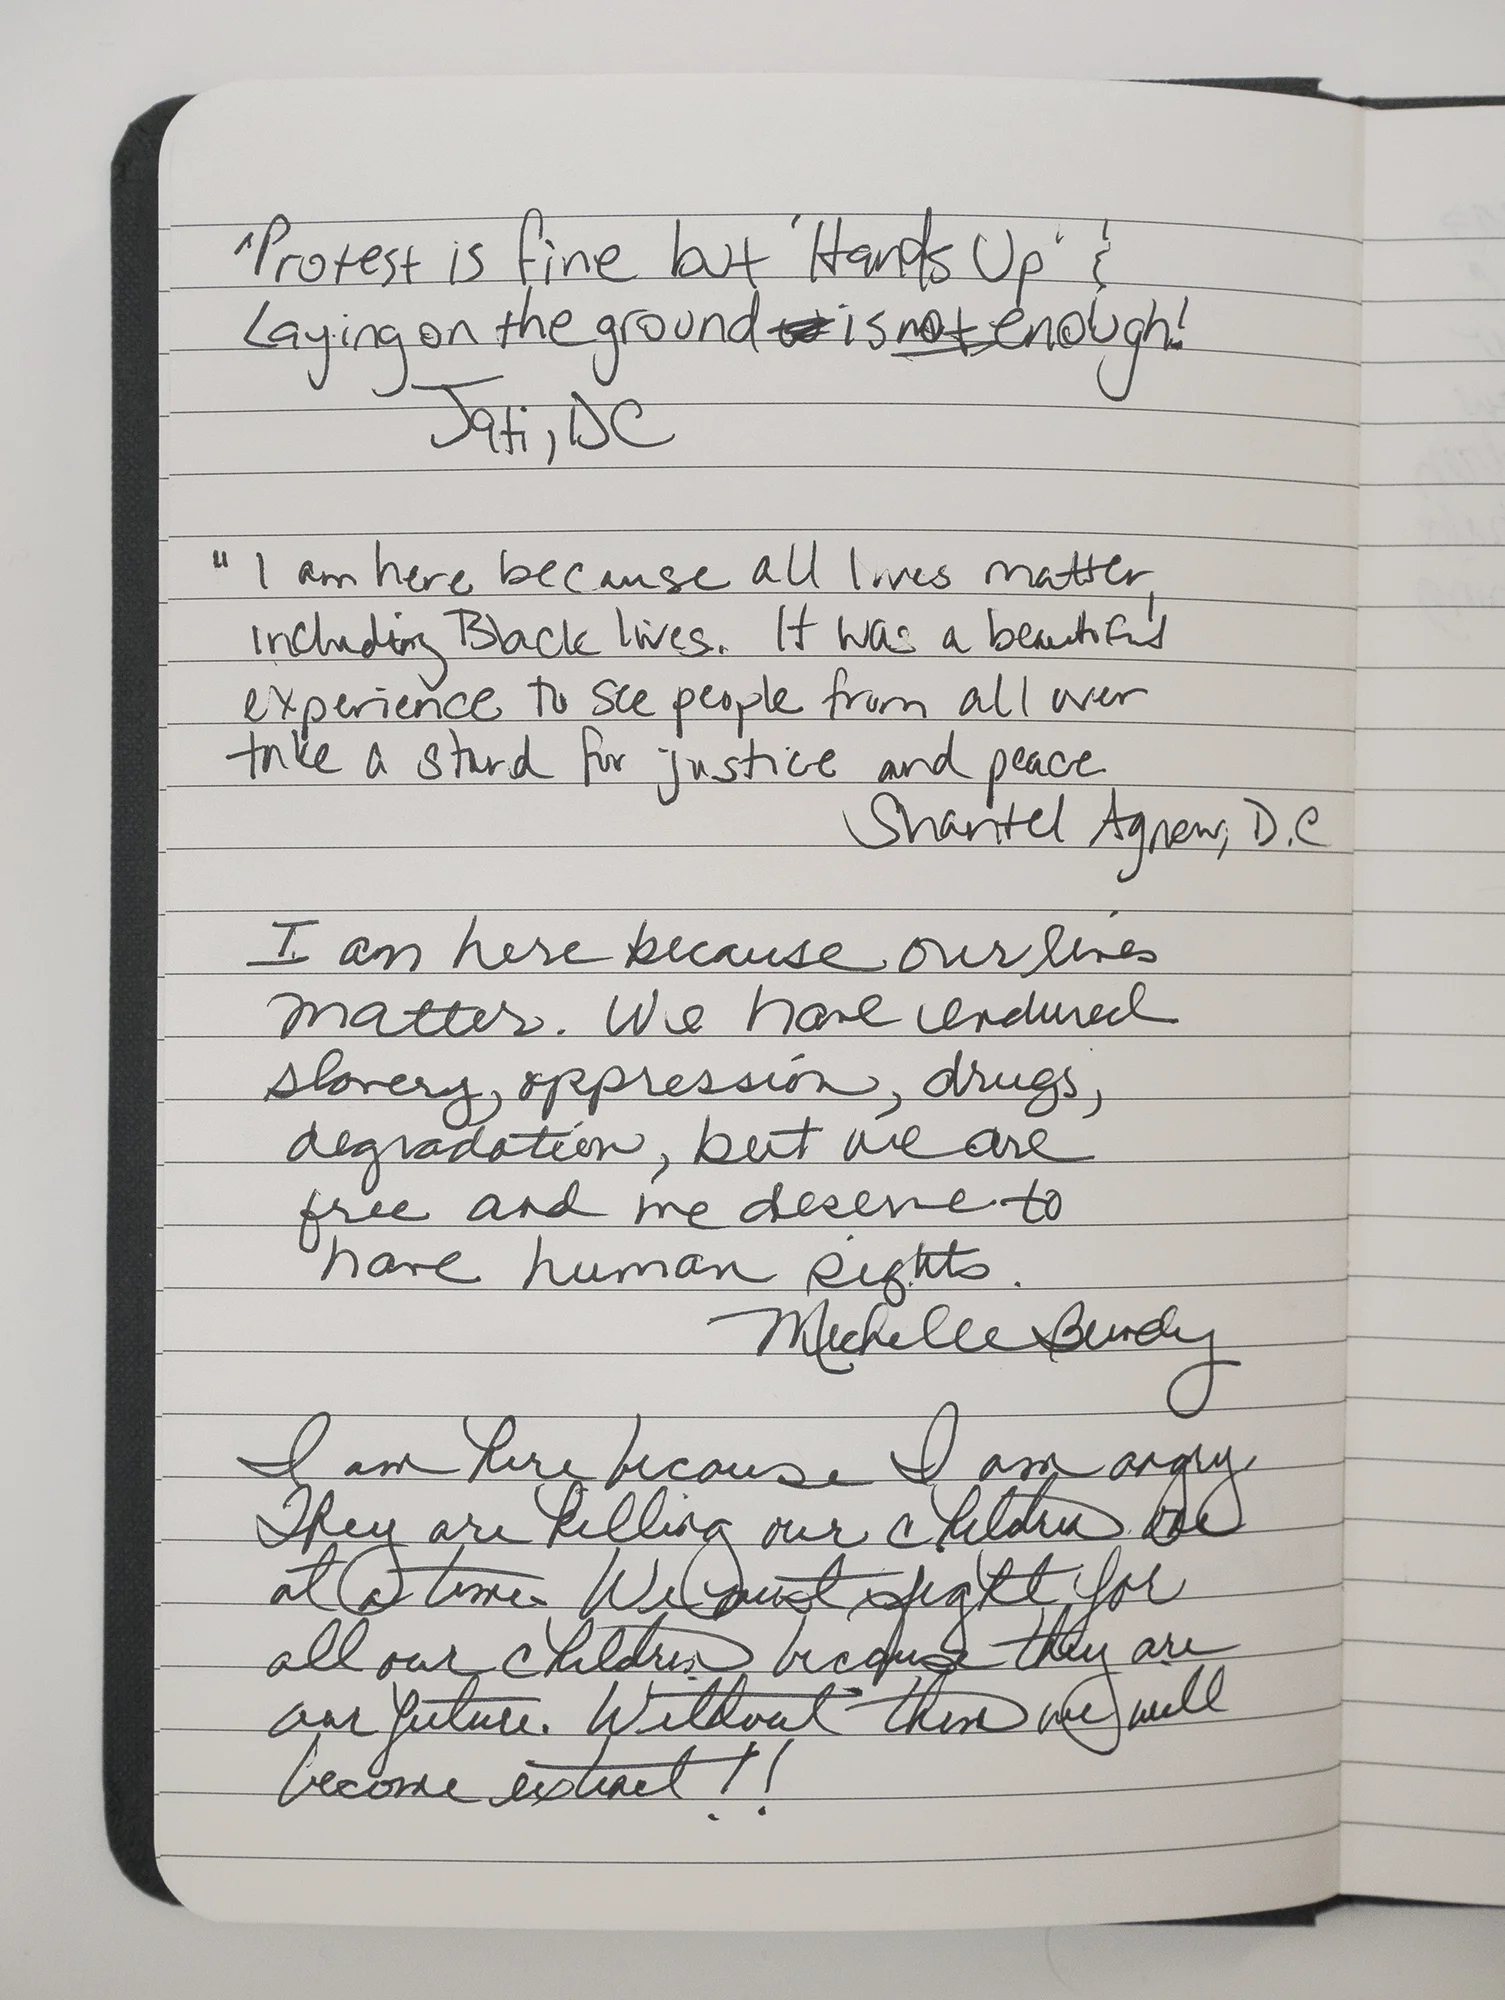 "Protest is fine but 'Hands Up' &
Laying on the ground is not enough!
Jati, DC
" I am here because all lives matter,
including Black lives. It was a beautiful
experience to see people from all over
take a stand for justice and peace
Shantel Agnew, D.C
I am here because our lives
matter. We have endured
slavery, oppression, drugs,
degradation, but we are
free and we deserve to
have human rights.
Michelle Bundy
I am here because I am angry.
They are killing our children one
at a time. We must fight for
all our children because they are
our future. Without them we will
become extinct!!